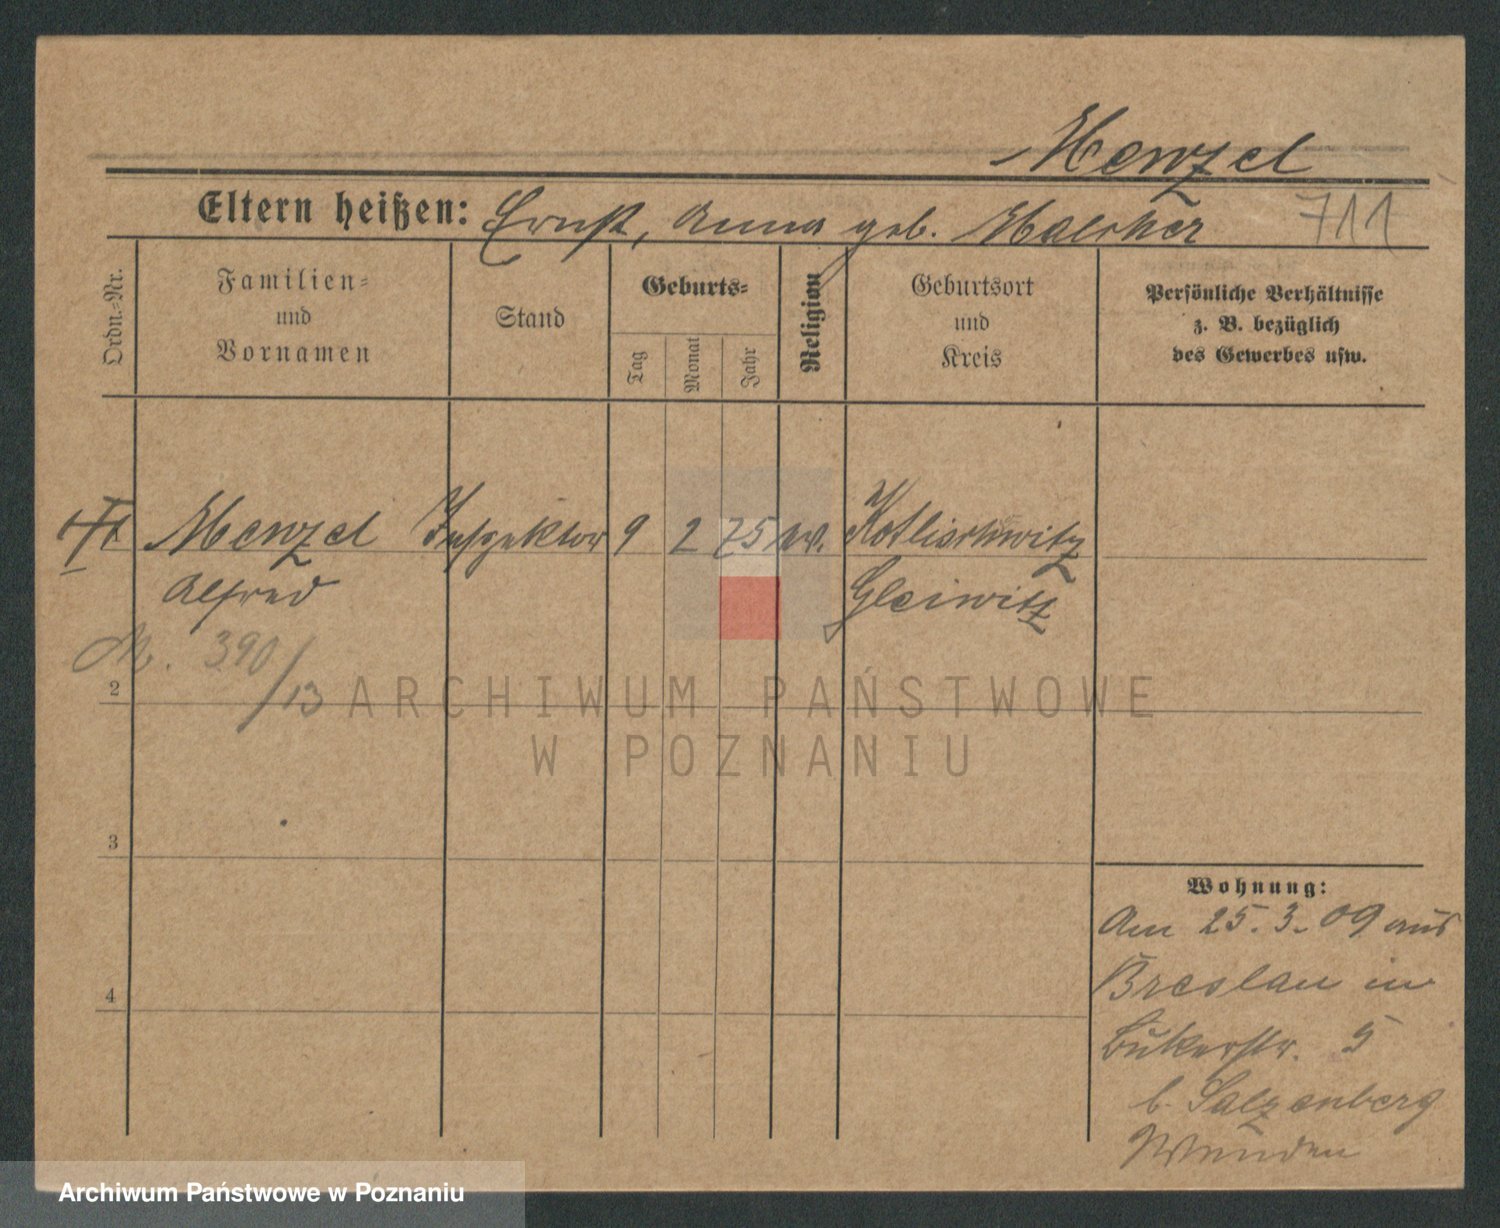 Menzel
Eltern heißen: Ernst, Anna geb. Maleker
711
Ordn.-Nr.
Familien-
und
Vornamen
Stand
Geburts-
Tag
Monat
Jahr
Religion
Geburtsort
und
Kreis
Persönliche Verhältnisse
z. B. bezüglich
des Gewerbes usw.
Menzel Inspektor 9 2 75 ev. Kotlischowitz
Alfred Gleiwitz
M. 390/13
2
3
4
Wohnung:
Am 25.3.09 aus
Breslau in
Bukerstr. 5
b. Salzenberg
ARCHIWUM PAŃSTWOWE
W POZNANIU
Archiwum Państwowe w Poznaniu